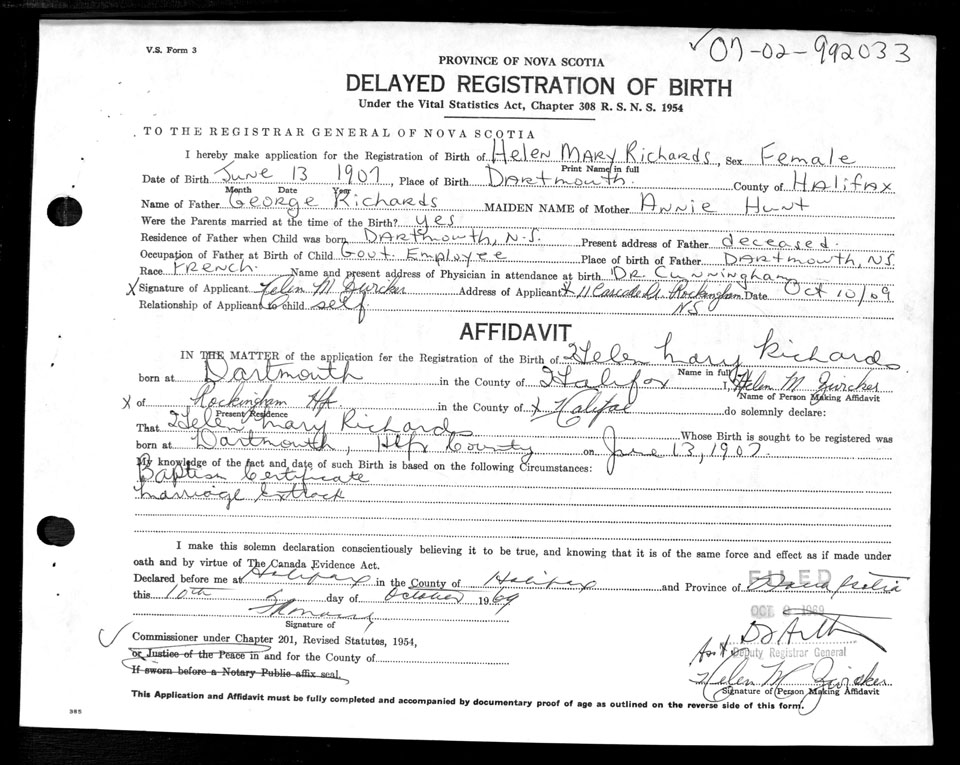 V.S. Form 3
07-02-992033
PROVINCE OF NOVA SCOTIA
DELAYED REGISTRATION OF BIRTH
Under the Vital Statistics Act, Chapter 308 R. S. N. S. 1954
TO THE REGISTRAR GENERAL OF NOVA SCOTIA
I hereby make application for the Registration of Birth of Helen Mary Richards, Sex Female
Print Name in full
Date of Birth June 13 1907, Place of Birth Dartmouth. County of Halifax
Month Date Year
Name of Father George Richards MAIDEN NAME of Mother Annie Hunt
Were the Parents married at the time of the Birth? yes
Residence of Father when Child was born Dartmouth, N.S. Present address of Father deceased.
Occupation of Father at Birth of Child Govt. Employee Place of birth of Father Dartmouth, N.S.
Race French. Name and present address of Physician in attendance at birth Dr. Cunningham
X Signature of Applicant Helen M Zwicker Address of Applicant X 11 Cascade Dr. Rockingham Date Oct 10/69
NS
Relationship of Applicant to child self
AFFIDAVIT
IN THE MATTER of the application for the Registration of the Birth of Helen Mary Richards
Name in full
born at Dartmouth in the County of Halifax I, Helen M Zwicker
Name of Person Making Affidavit
X of Rockingham Hfx in the County of X Halifax do solemnly declare:
Present Residence
That Helen Mary Richards Whose Birth is sought to be registered was
born at Dartmouth, Hfx County on June 13, 1907.
My knowledge of the fact and date of such Birth is based on the following Circumstances:
Baptism Certificate
marriage extract
I make this solemn declaration conscientiously believing it to be true, and knowing that it is of the same force and effect as if made under
oath and by virtue of The Canada Evidence Act.
Declared before me at Halifax in the County of Halifax and Province of Nova Scotia
FILED
this 10th day of October 1969
OCT 1969
Signature of
Commissioner under Chapter 201, Revised Statutes, 1954,
or Justice of the Peace in and for the County of
Deputy Registrar General
If sworn before a Notary Public affix seal.
Helen M Zwicker
Signature of Person Making Affidavit
This Application and Affidavit must be fully completed and accompanied by documentary proof of age as outlined on the reverse side of this form.
385